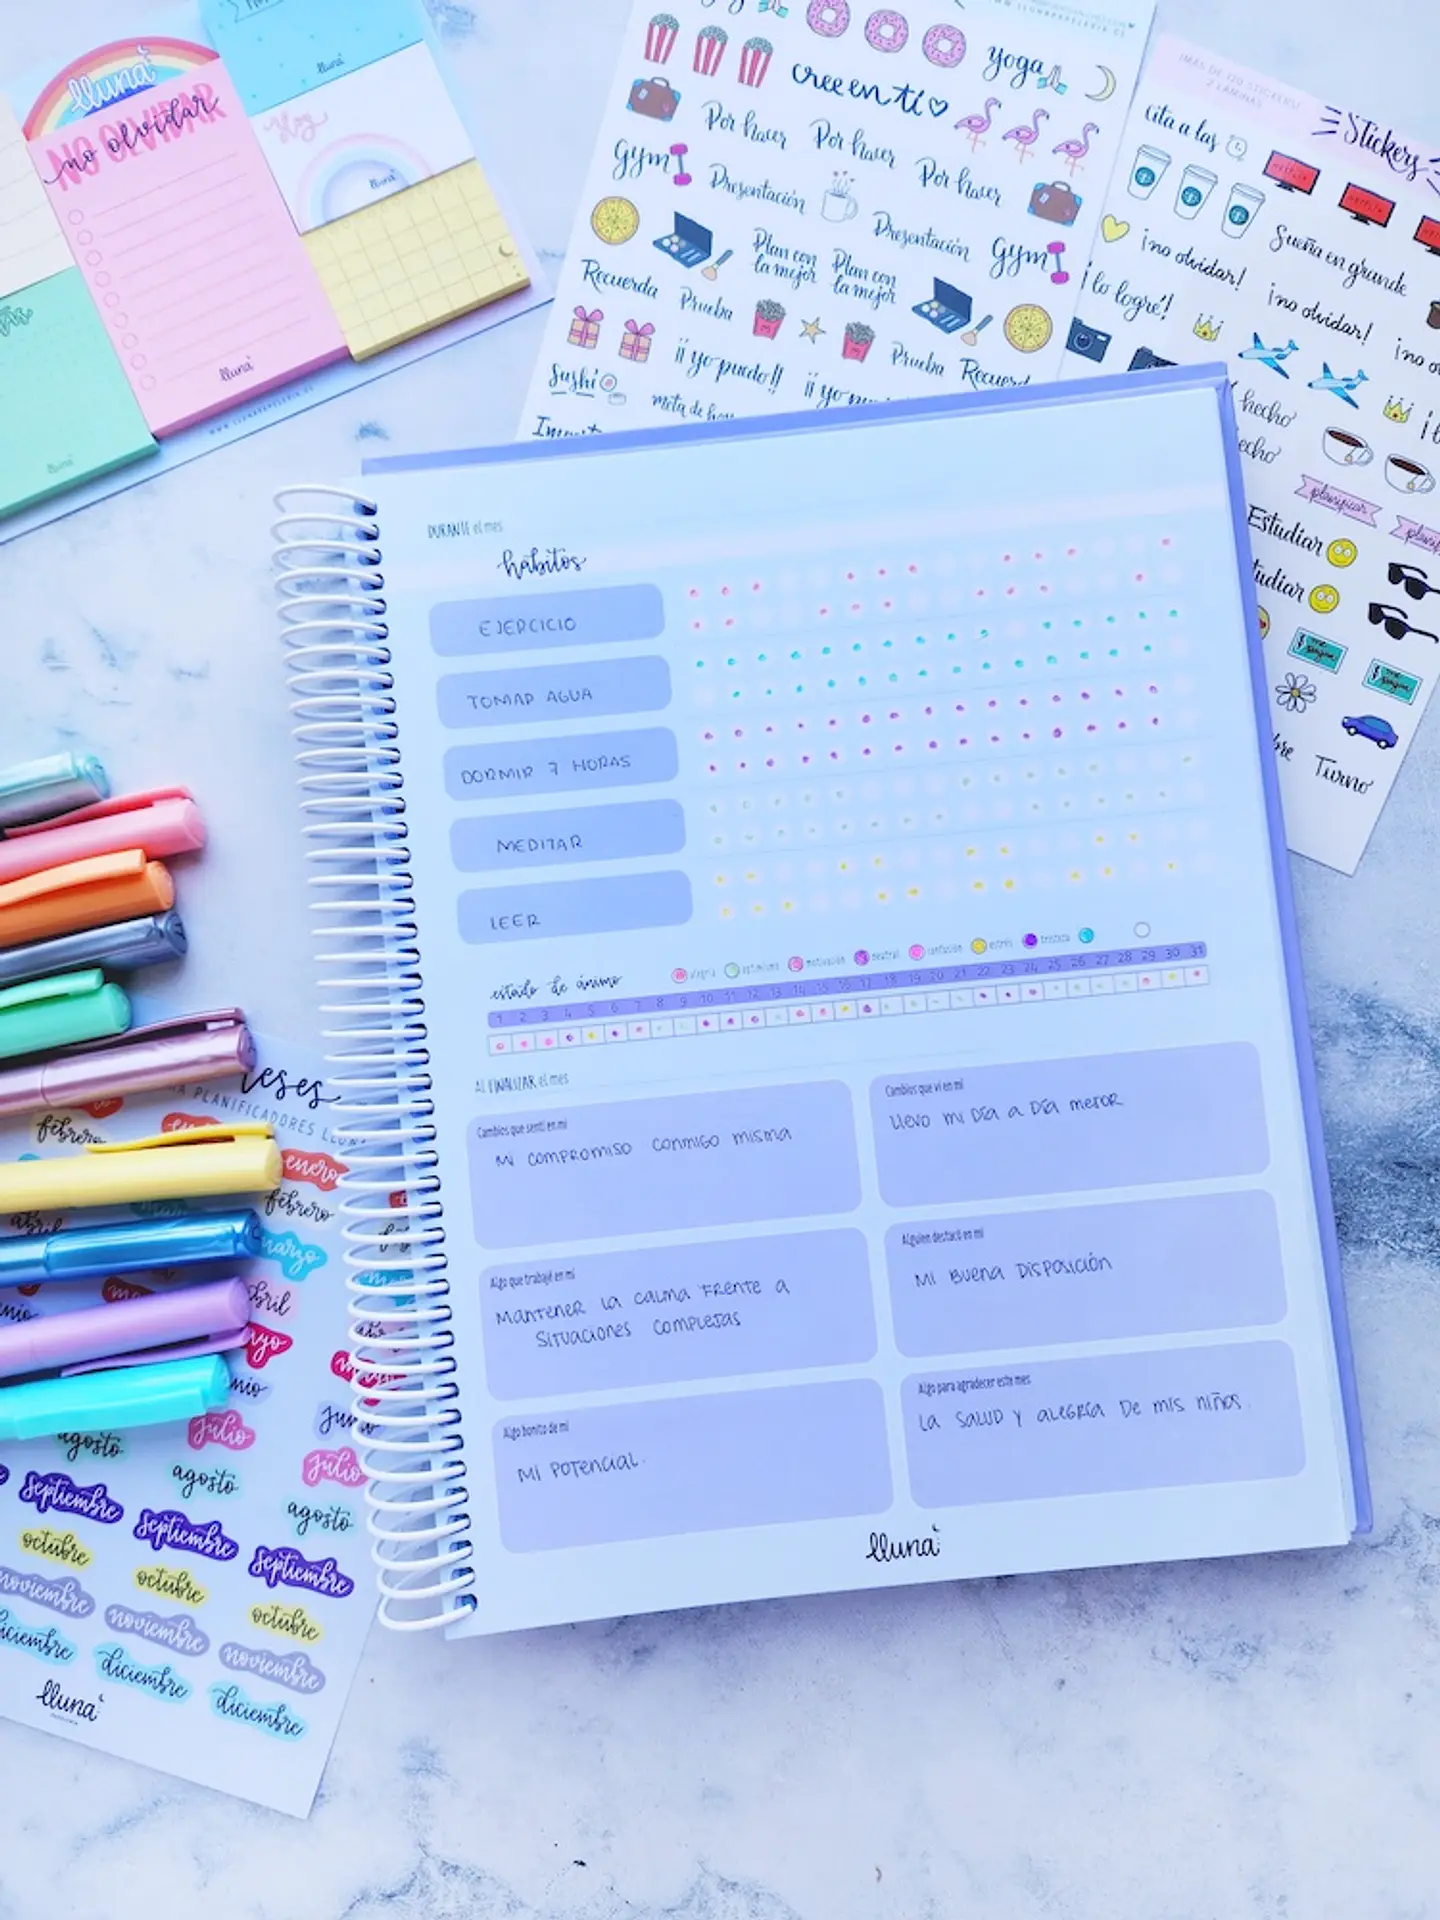 lluna
NO OLVIDAR
no olvidar
lluna
lluna
Hoy
lluna
lluna
cree en ti
yoga
Por hacer
Por hacer
Por hacer
Gym
Presentación
Presentación
Gym
Plan con
la mejor
Plan con
la mejor
Recuerda
Prueba
Prueba
¡¡ yo puedo!!
Sushi
¡MÁS DE 120 STICKERS!
2 LÁMINAS
Stickers
Cita a las
¡no olvidar!
Sueña en grande
¡lo logré!
¡no olvidar!
hecho
planificar
Estudiar
Turno
DURANTE el mes
hábitos
EJERCICIO
TOMAR AGUA
DORMIR 7 HORAS
MEDITAR
LEER
estado de ánimo
alegría
optimismo
motivación
neutral
confusión
estrés
tristeza
1 2 3 4 5 6 7 8 9 10 11 12 13 14 15 16 17 18 19 20 21 22 23 24 25 26 27 28 29 30 31
AL FINALIZAR el mes
Cambios que sentí en mí
Mi COMPROMISO CONMIGO MISMA
Cambios que vi en mí
Llevo mi Día a Día mejor
Algo que trabajé en mí
MANTENER LA CALMA FRENTE A
SITUACIONES COMPLEJAS
Alguien destacó en mí
MI BUENA DISPOSICIÓN
Algo bonito de mí
MI POTENCIAL.
Algo para agradecer este mes
LA SALUD Y ALEGRÍA DE MIS NIÑAS.
lluna
febrero
enero
febrero
marzo
julio
julio
agosto
agosto
agosto
septiembre
septiembre
septiembre
octubre
octubre
octubre
noviembre
noviembre
noviembre
diciembre
diciembre
lluna